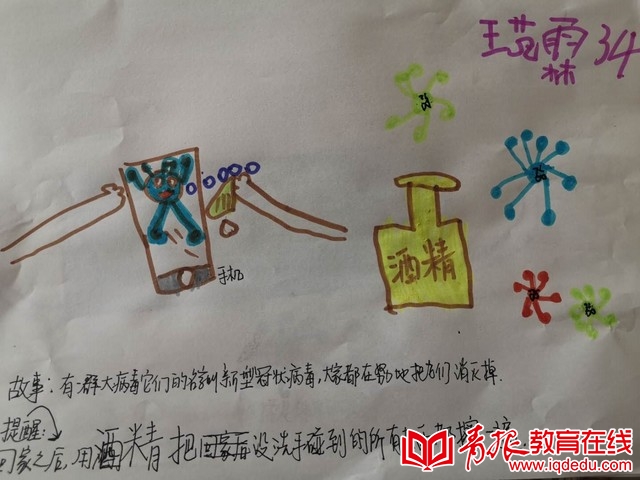 王苑霖 34
酒精
手机
故事：有群大病毒它们的名叫新型冠状病毒，大家都在努力地把它们消灭掉．
提醒：
回家之后，用酒精把回家后没洗手碰到的所有
青报教育在线
www.iqdedu.com